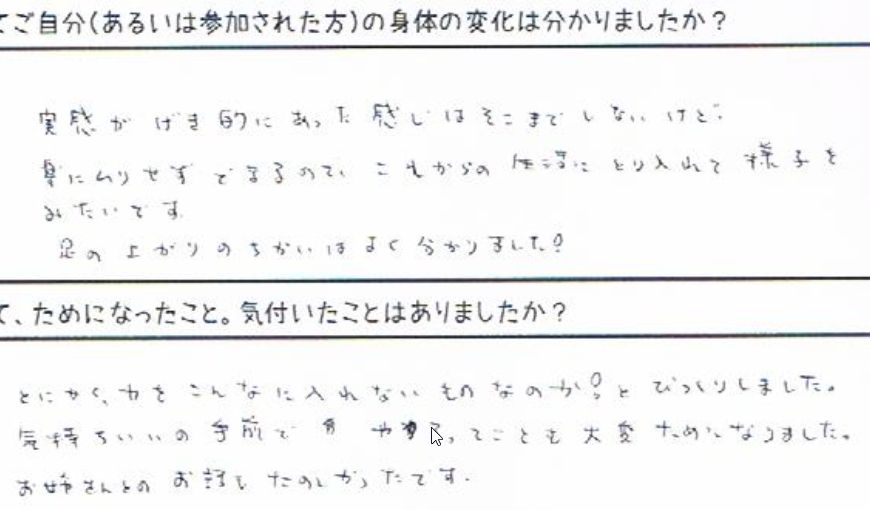 てご自分(あるいは参加された方)の身体の変化は分かりましたか?
実感が げき的に あった 感じは そこまで しないけど、
楽に ムリせず できるので、これからの 生活に とり入れて 様子を
みたいです。
足の 上がりの ちがいは よく 分かりました!
て、ためになったこと。気付いたことはありましたか?
とにかく、力を こんなに 入れない ものなのか?と びっくりしました。
気持ちいいの 手前で やってことも 大変 ためになりました。
お姉さんとの お話も たのしかったです。